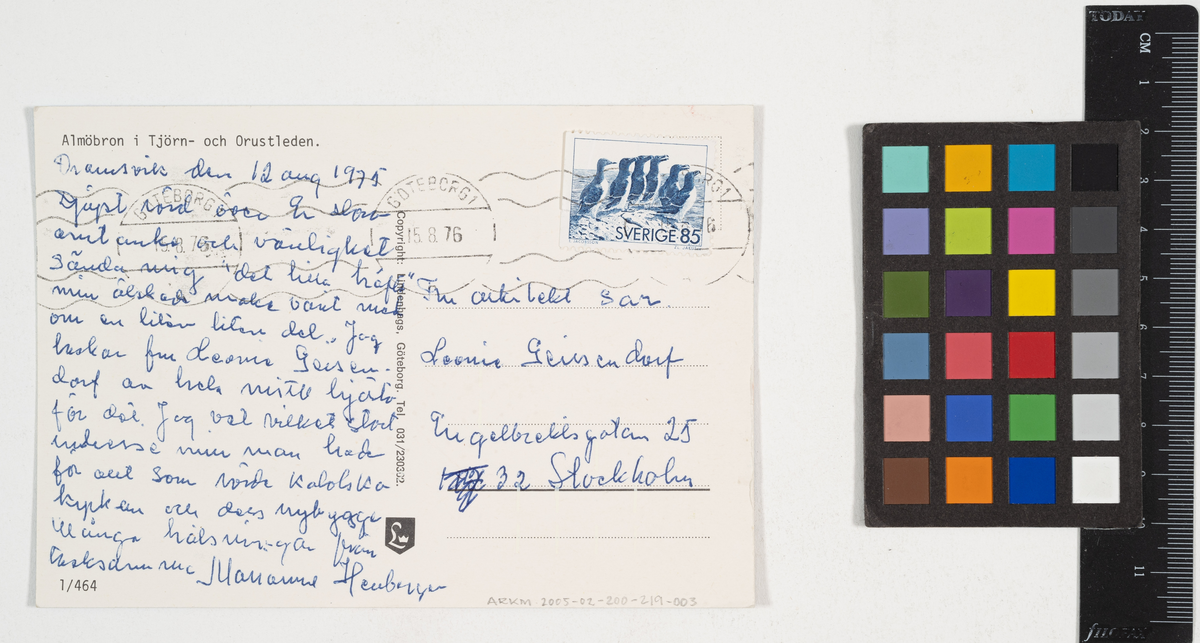 Almöbron i Tjörn- och Orustleden.
den 12 aug 1975
Djupt rörd över Er stora
omtanke och vänlighet
sända mig "det lilla häfte"
min älskade make varit med
om en liten liten del. Jag
tackar fru Leonie Geisen-
dorf av hela mitt hjärta
för det. Jag vet vilket stort
intresse min man hade
för allt som rörde katolska
kyrkan och dess nybygge
Många hälsningar från
tacksamma Marianne
1/464
GÖTEBORG 1
15.8.76
GÖTEBORG 1
15.8.76
SVERIGE 85
Copyright: Lindenhags, Göteborg. Tel. 031/230302.
L
Fru arkitekt sar
Leonie Geisendorf
Engelbrektsgatan 25
32 Stockholm
ARKM 2005-02-200-219-003
TODAY
CM
1
2
3
4
5
6
7
8
9
11